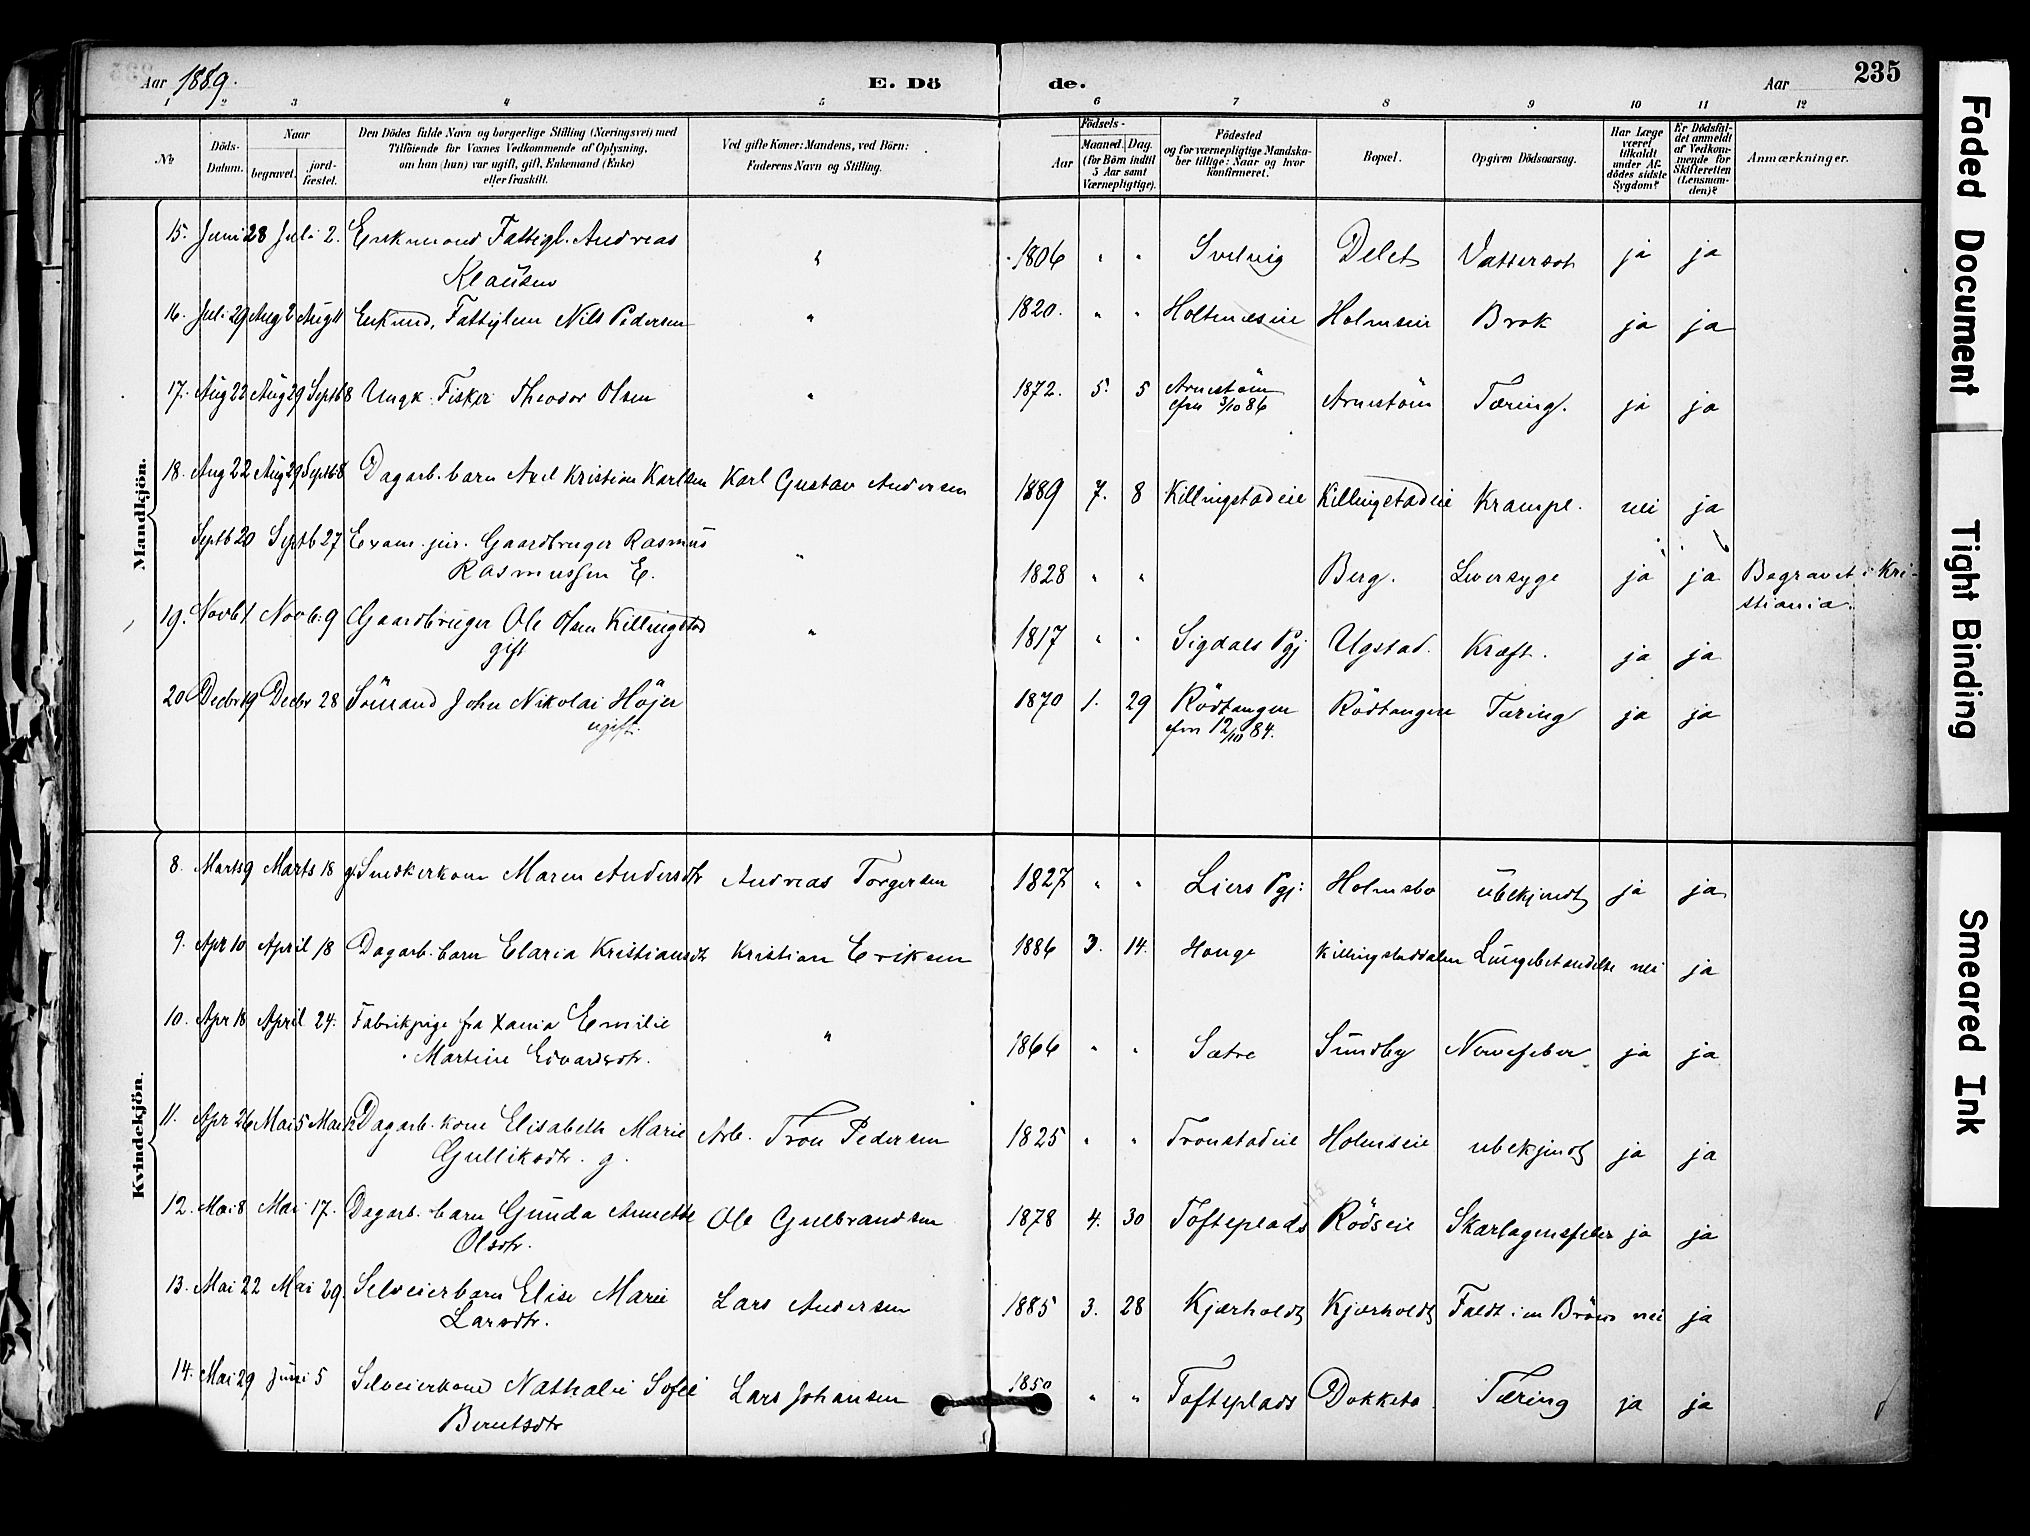 Aar 1889.
E. Döde.
Aar
235
1 2 3 4 5 6 7 8 9 10 11 12
No
Döds-Datum.
Naar
begravet.
jordfæstet.
Den Dödes fulde Navn og borgerlige Stilling (Næringsvei) med
Tilföiende for Voxnes Vedkommende af Oplysning,
om han (hun) var ugift, gift, Enkemand (Enke)
eller fraskilt.
Ved gifte Koner: Mandens, ved Börn:
Faderens Navn og Stilling.
Födsels-
Aar
Maaned. Dag.
(for Börn indtil
5 Aar samt
Værnepligtige).
Födested
og for værnepligtige Mandskaber tillige: Naar og hvor
konfirmeret.
Bopæl.
Opgiven Dödsaarsag.
Har Læge
været
tilkaldt
under Afdödes sidste
Sygdom?
Er Dödsfaldet anmeldt
af Vedkommende for
Skifteretten
(Lensmanden)?
Anmærkninger.
Mandkjön.
15. Juni 28 Juli 2. Enkemand Fattigl. Andreas Klausen " 1806 " " Svelvig Delet Vattersot ja ja
16. Juli 29 Aug 2 Aug 11 Enkmd, Fattiglem Nils Pedersen " 1820. " " Holtnæseie Holmseie Brok ja ja
17. Aug 22 Aug 29 Septb 8 Ungk. Fisker Theodor Olsen " 1872. 5. 5 Arnestöm cfm 3/10 86 Arnestöm Tæring. ja ja
18. Aug 22 Aug 29 Septb 8 Dagarb. barn Axel Kristian Karlsen Karl Gustav Andersen 1889 7. 8 Killingstadeie Killingstadeie Krampe. nei ja
Septb 20 Septb 27 Exam. jur. Gaardbruger Rasmus Rasmussen E. " 1828 " " Berg. Leversyge ja ja Begravet i Kristiania.
19. Novb 1 Novb. 9 Gaardbruger Ole Olsen Killingstad gift " 1817 " " Sigdals Pgj Ugstad. Kræft. ja ja
20 Decbr 19 Decbr 28 Sömand John Nikolai Höjer ugift. 1870 1. 29 Rödtangen cfm 12/10 84. Rödtangen Tæring ja ja
Kvindekjön.
8. Marts 9 Marts 18 g. Snedkerkone Maren Andersdtr Andreas Torgersen 1827 " " Liers Pgj: Holmsbo ubekjendt ja ja
9. Apr 10 April 18 Dagarb. barn Elaria Kristiansdtr Kristian Eriksen 1886 3. 14. Hauge Killingstaddalen Lungebetændelse nei ja
10. Apr 18 April 24. Fabrikpige fra Xania Emilie Martine Edvardsdtr. " 1866 " " Sætre Sundby Nervefeber ja ja
11. Apr 26 Mai 5 Mai Dagarb. kone Elisabeth Marie Gulliksdtr. g. Arb. Tron Pedersen 1825 " " Tronstadeie Holmseie ubekjendt ja ja
12. Mai 8 Mai 17. Dagarb. barn Gunda Annette Olsdtr. Ole Gulbrandsen 1878 4. 30 Tofteplads Rödseie Skarlagensfeber ja ja
13. Mai 22 Mai 29. Selveierbarn Elise Marie Larsdtr. Lars Andersen 1885 3. 28 Kjærholdt Kjærholdt Faldt i en Brönd nei ja
14. Mai 29 Juni 5 Selveierkone Nathalie Sofie Berntsdtr Lars Johansen 1850 " " Tofteplads Dokketo. Tæring ja ja
Faded Document
Tight Binding
Smeared Ink